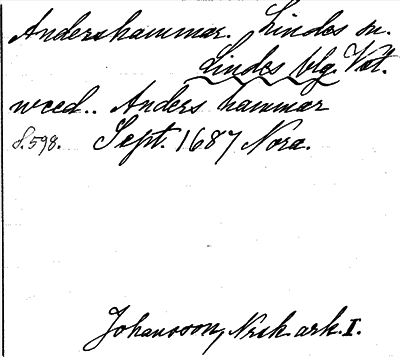 Andershammar. Lindes sn.
Lindes blg. Vst.
weed.. Anders hammar
S. 598. Sept. 1687 Nora.
Johansson, Nrsk. ark. I.